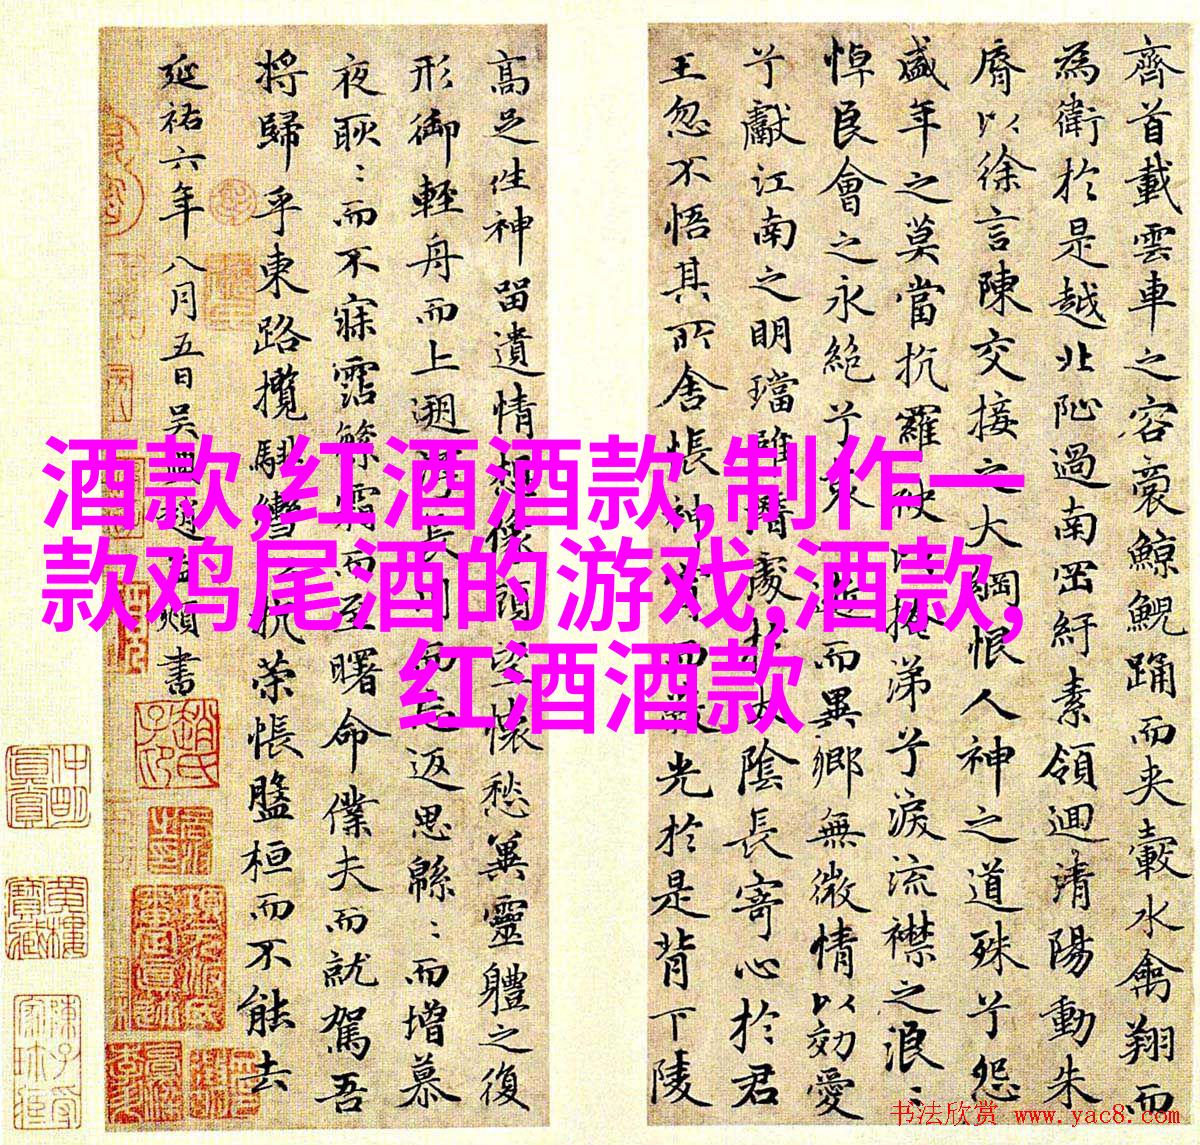 齊首載雲車之容裔鯨鯢踊而夾轂水禽翔而
為衛於是越北沚過南岡紆素領迴清陽動朱
脣以徐言陳交接之大綱恨人神之道殊兮怨
盛年之莫當抗羅袂以掩涕兮淚流襟之浪〻
悼良會之永絕兮哀一逝而異鄉無微情以効愛
兮獻江南之明璫雖潛處於太陰長寄心於君
王忽不悟其所舍悵神宵而蔽光於是背下陵
高足往神留遺情想像顧望懷愁冀靈體之復
形御輕舟而上遡浮長川而忘返思緜〻而增慕
夜耿〻而不寐霑繁霜而至曙命僕夫而就駕吾
將歸乎東路攬騑轡以抗策悵盤桓而不能去
延祐六年八月五日吳興趙孟頫書
酒款,红酒酒款,制作一
款鸡尾酒的游戏,酒款,
红酒酒款
书法欣赏 www.yac8.com